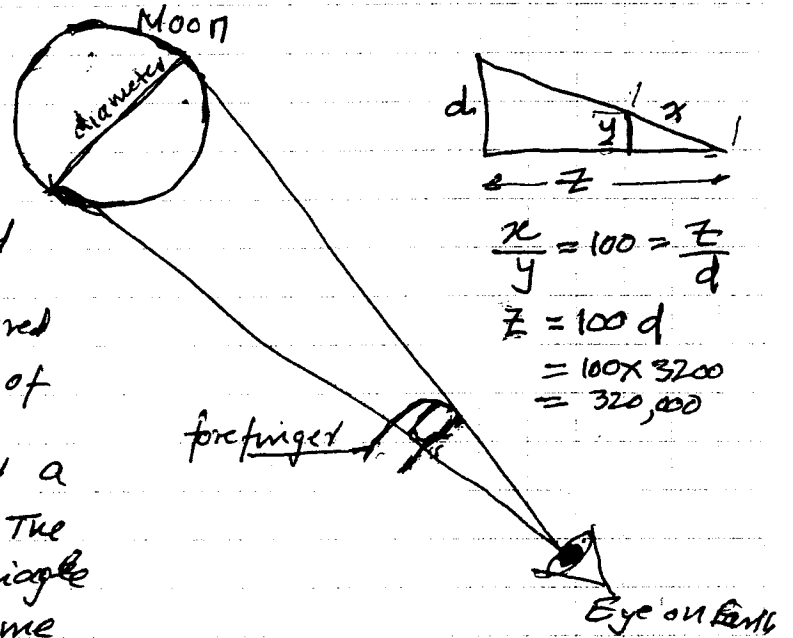 Moon
diameter
d
y
x
z
x/y = 100 = z/d
z = 100 d
= 100 x 3200
= 320,000
forefinger
Eye on Earth
d
red
of
a
The
me